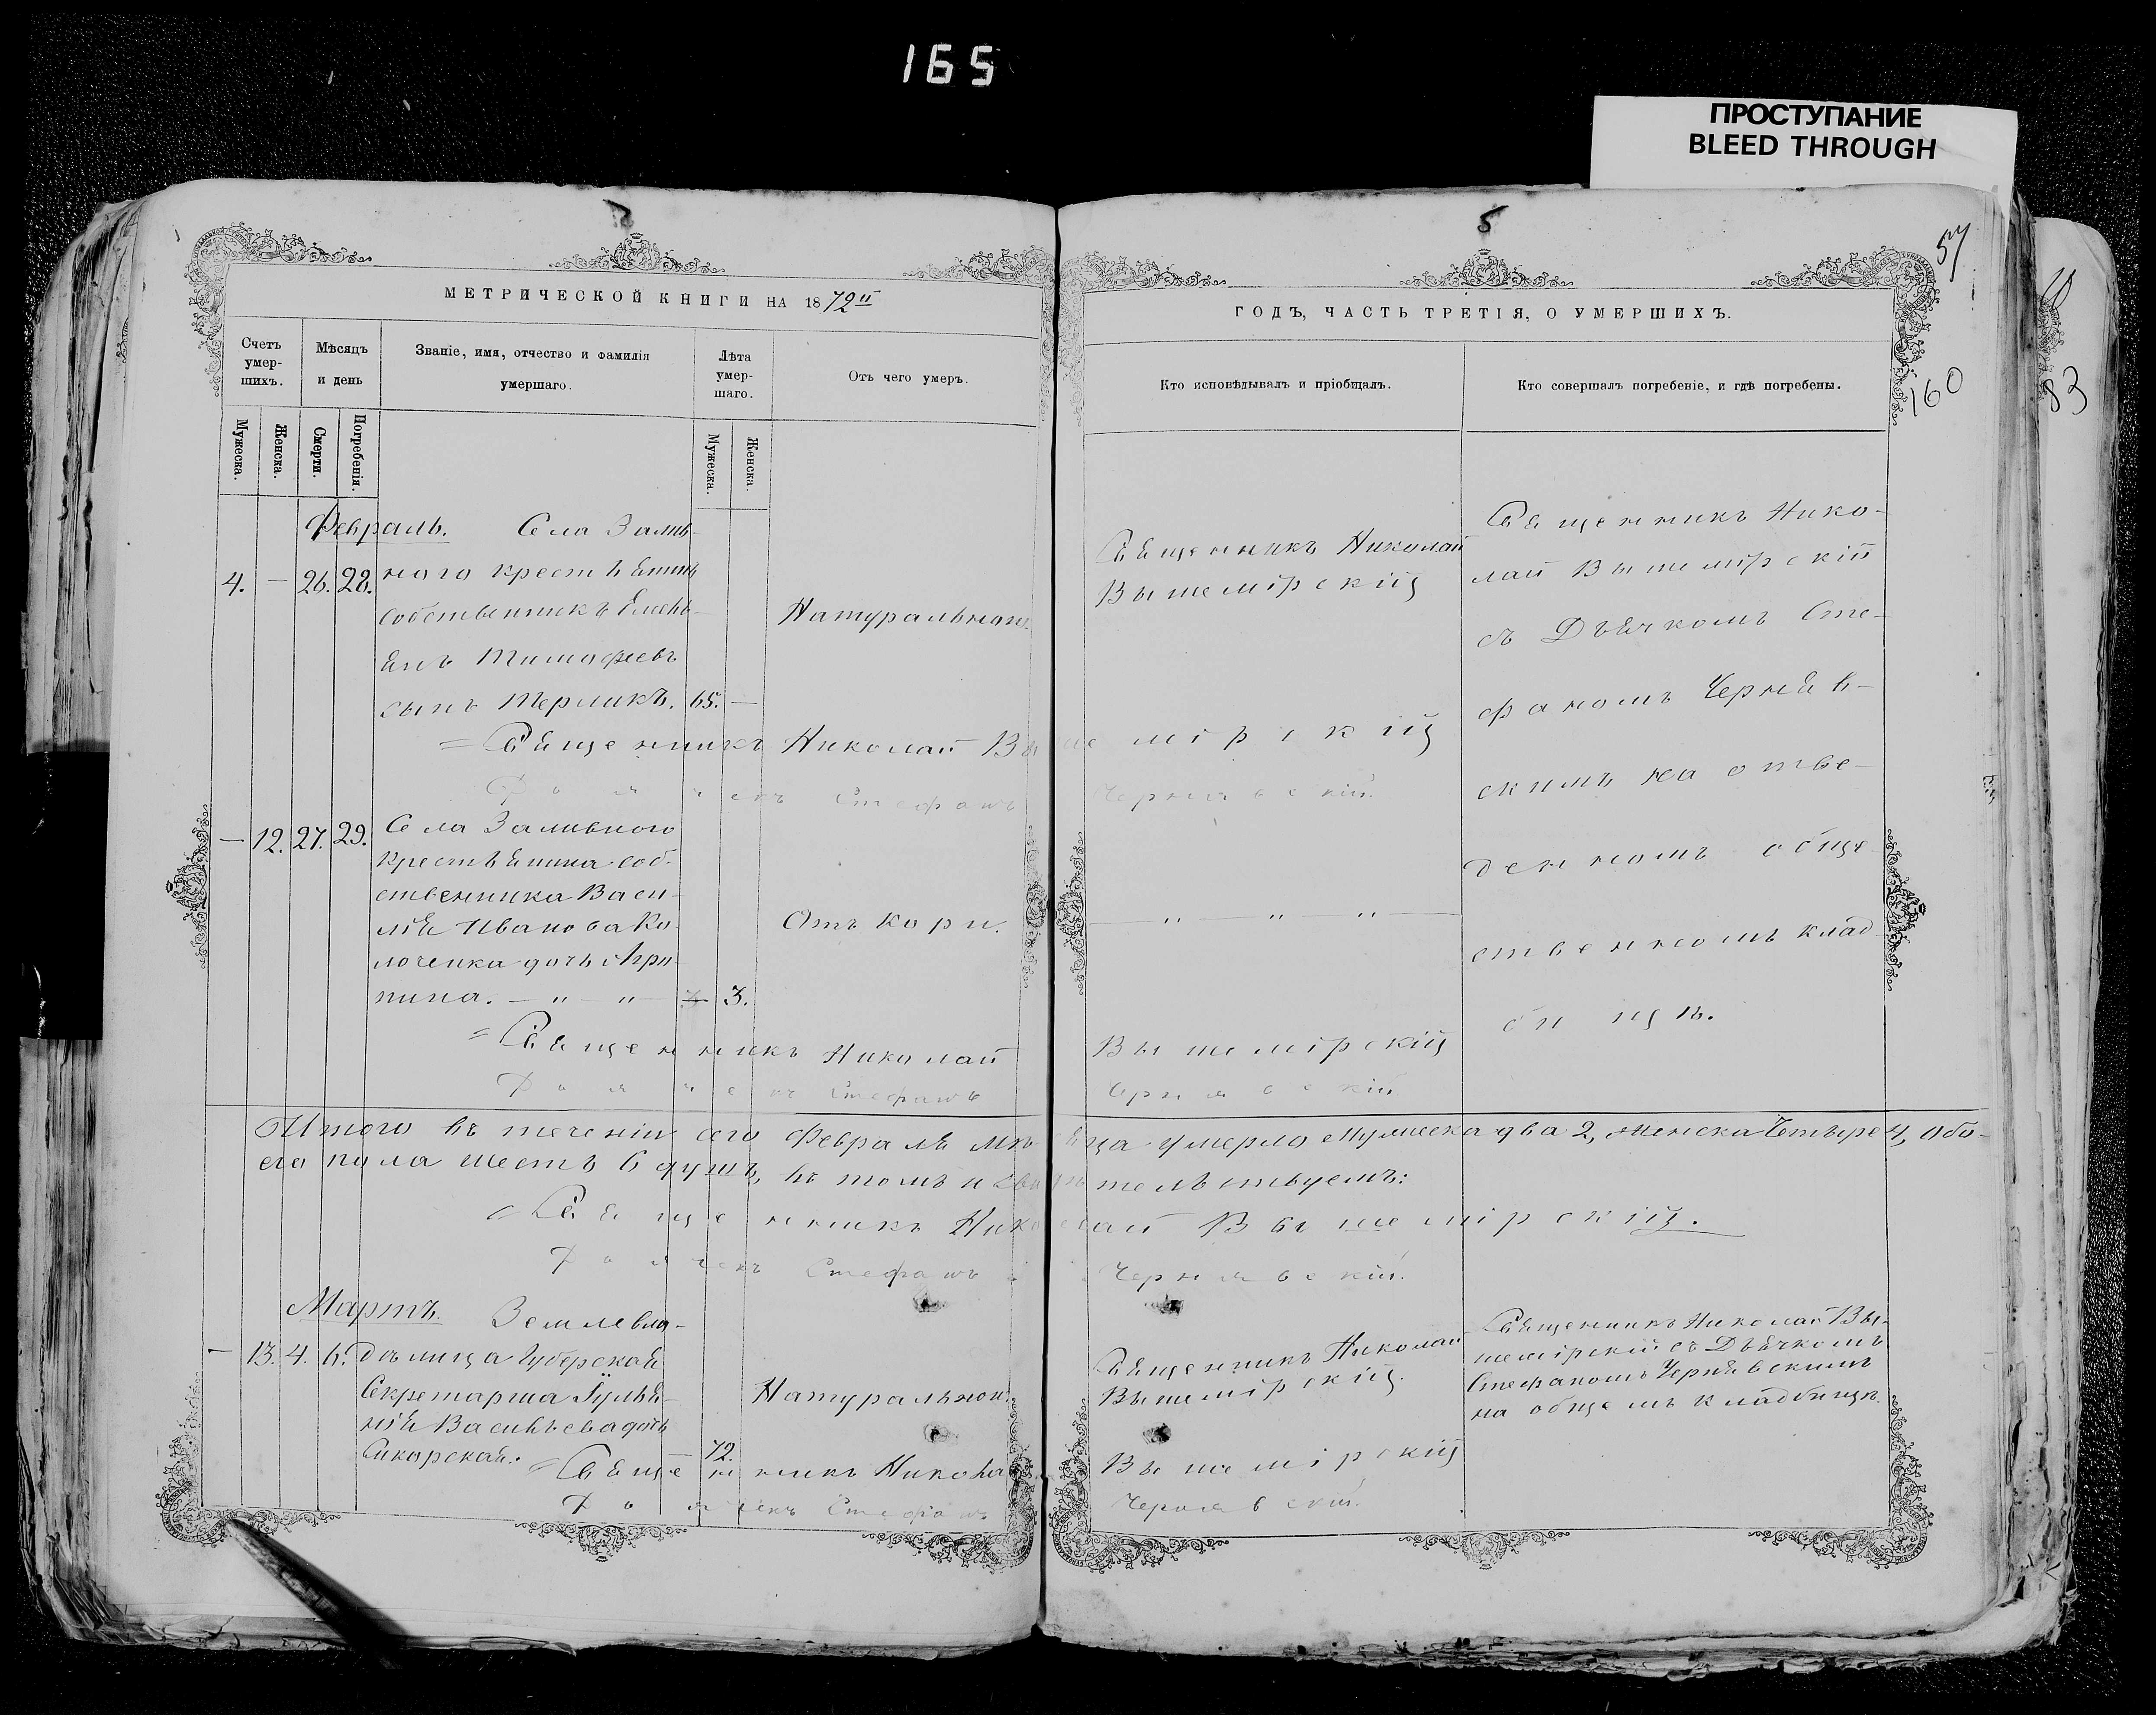 165
ПРОСТУПАНИЕ
BLEED THROUGH
5
57
160
83
МЕТРИЧЕСКОЙ КНИГИ НА 1872й
ГОДЪ, ЧАСТЬ ТРЕТІЯ, О УМЕРШИХЪ.
Счетъ умер-шихъ.
Мѣсяцъ и день
Званіе, имя, отчество и фамилія умершаго.
Лѣта умер-шаго.
Отъ чего умеръ.
Кто исповѣдывалъ и пріобщалъ.
Кто совершалъ погребеніе, и гдѣ погребены.
Мужеска.
Женска.
Смерти.
Погребенія.
Мужеска.
Женска.
Февраль. Села Залив-
4. — 26. 28. ного крестьянинъ
собственникъ
Тимофеевъ
сынъ Терликъ. 65. —
Натуральною
Священникъ Николай
Вышемірскій
Священникъ Нико-
лай Вышемірскій
съ Дьячкомъ Сте-
фаномъ Черняв-
скимъ на отве-
денномъ обще
ственномъ клад
бищѣ.
= Священникъ Николай Вышемірскій
Дьячекъ Стефанъ Чернявскій
— 12. 27. 29. Села Заливного
крестьянина соб-
ственника Васи-
лія Иванова Ко-
лоченка дочь Агри
пина. — " — " — 3.
Отъ кори.
— " — " — " —
= Священникъ Николай Вышемірскій
Дьячекъ Стефанъ Чернявскій
Итого въ теченіи сего Февраль мѣсяца умерло мужеска два 2, женска Четыре 4, обо-
его пола шесть 6 душъ, въ томъ и свидѣтельствуемъ:
= Священникъ Николай Вышемірскій.
Дьячекъ Стефанъ Чернявскій.
Мартъ. Землевла-
— 13. 4. 6. дѣлица Губерская
Секретарша Іуліа-
нія Васильева дочь
Сикорская. 72.
Натуральною.
Священникъ Николай
Вышемірскій.
Священникъ Николай Вы-
шемірскій съ Дьячкомъ
Стефаномъ Чернявскимъ
на общемъ кладбищѣ.
= Священникъ Николай Вышемірскій
Дьячекъ Стефанъ Чернявскій.